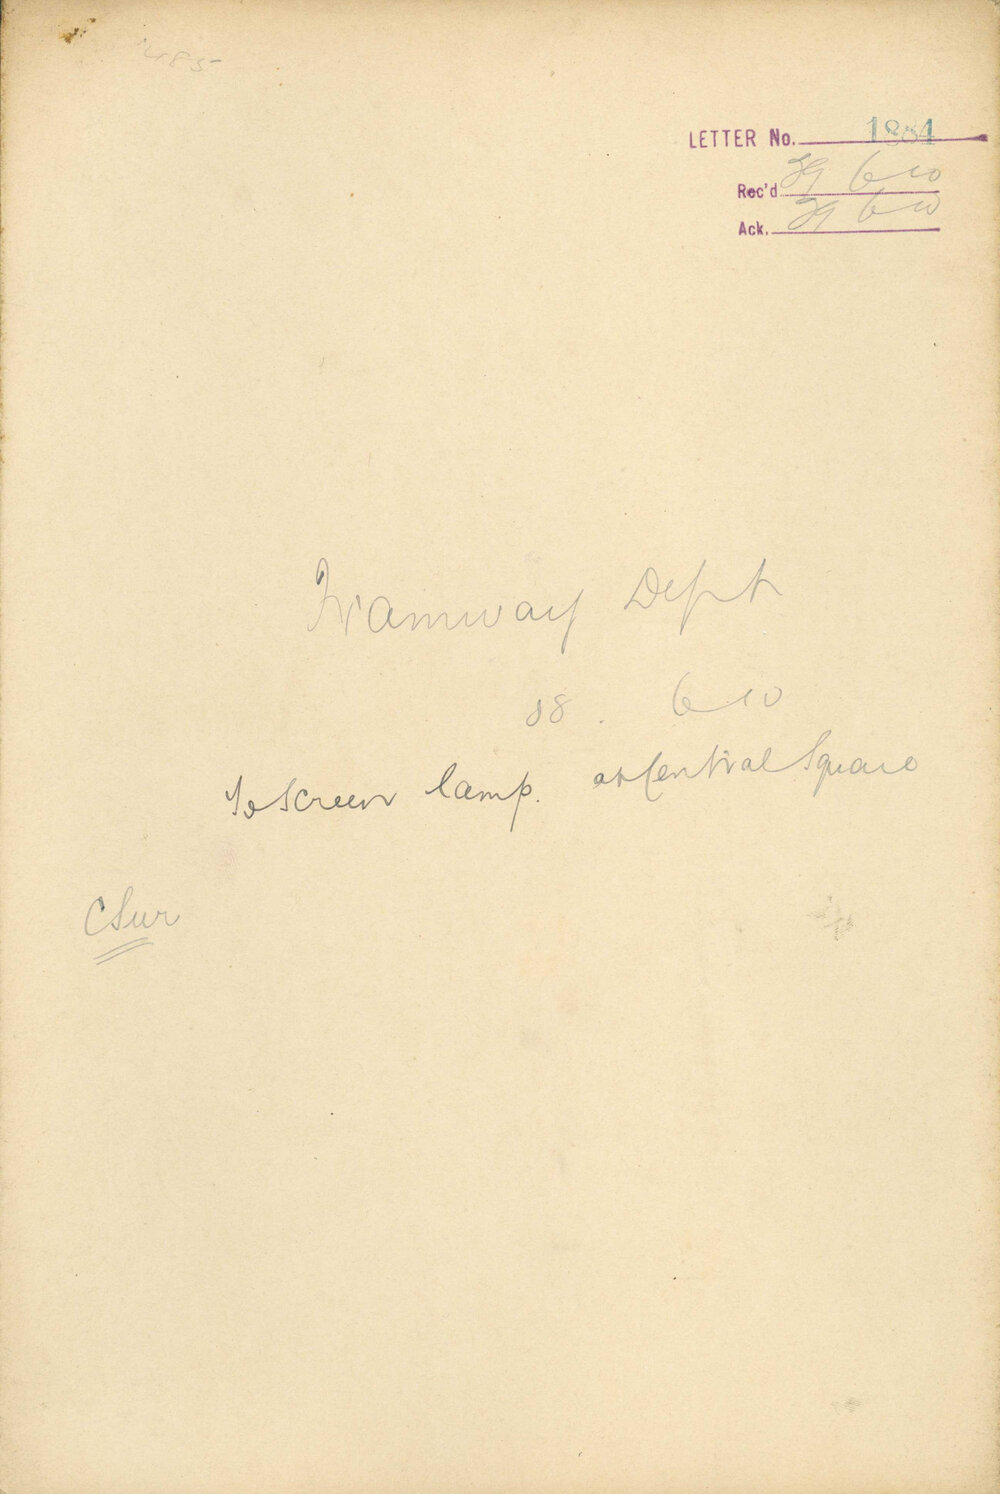 485
LETTER No. 1884
Rec'd 29 6 10
Ack. 29 6 10
Tramway Dept
28. 6 10
To screen lamp. at Central Square
C Sur